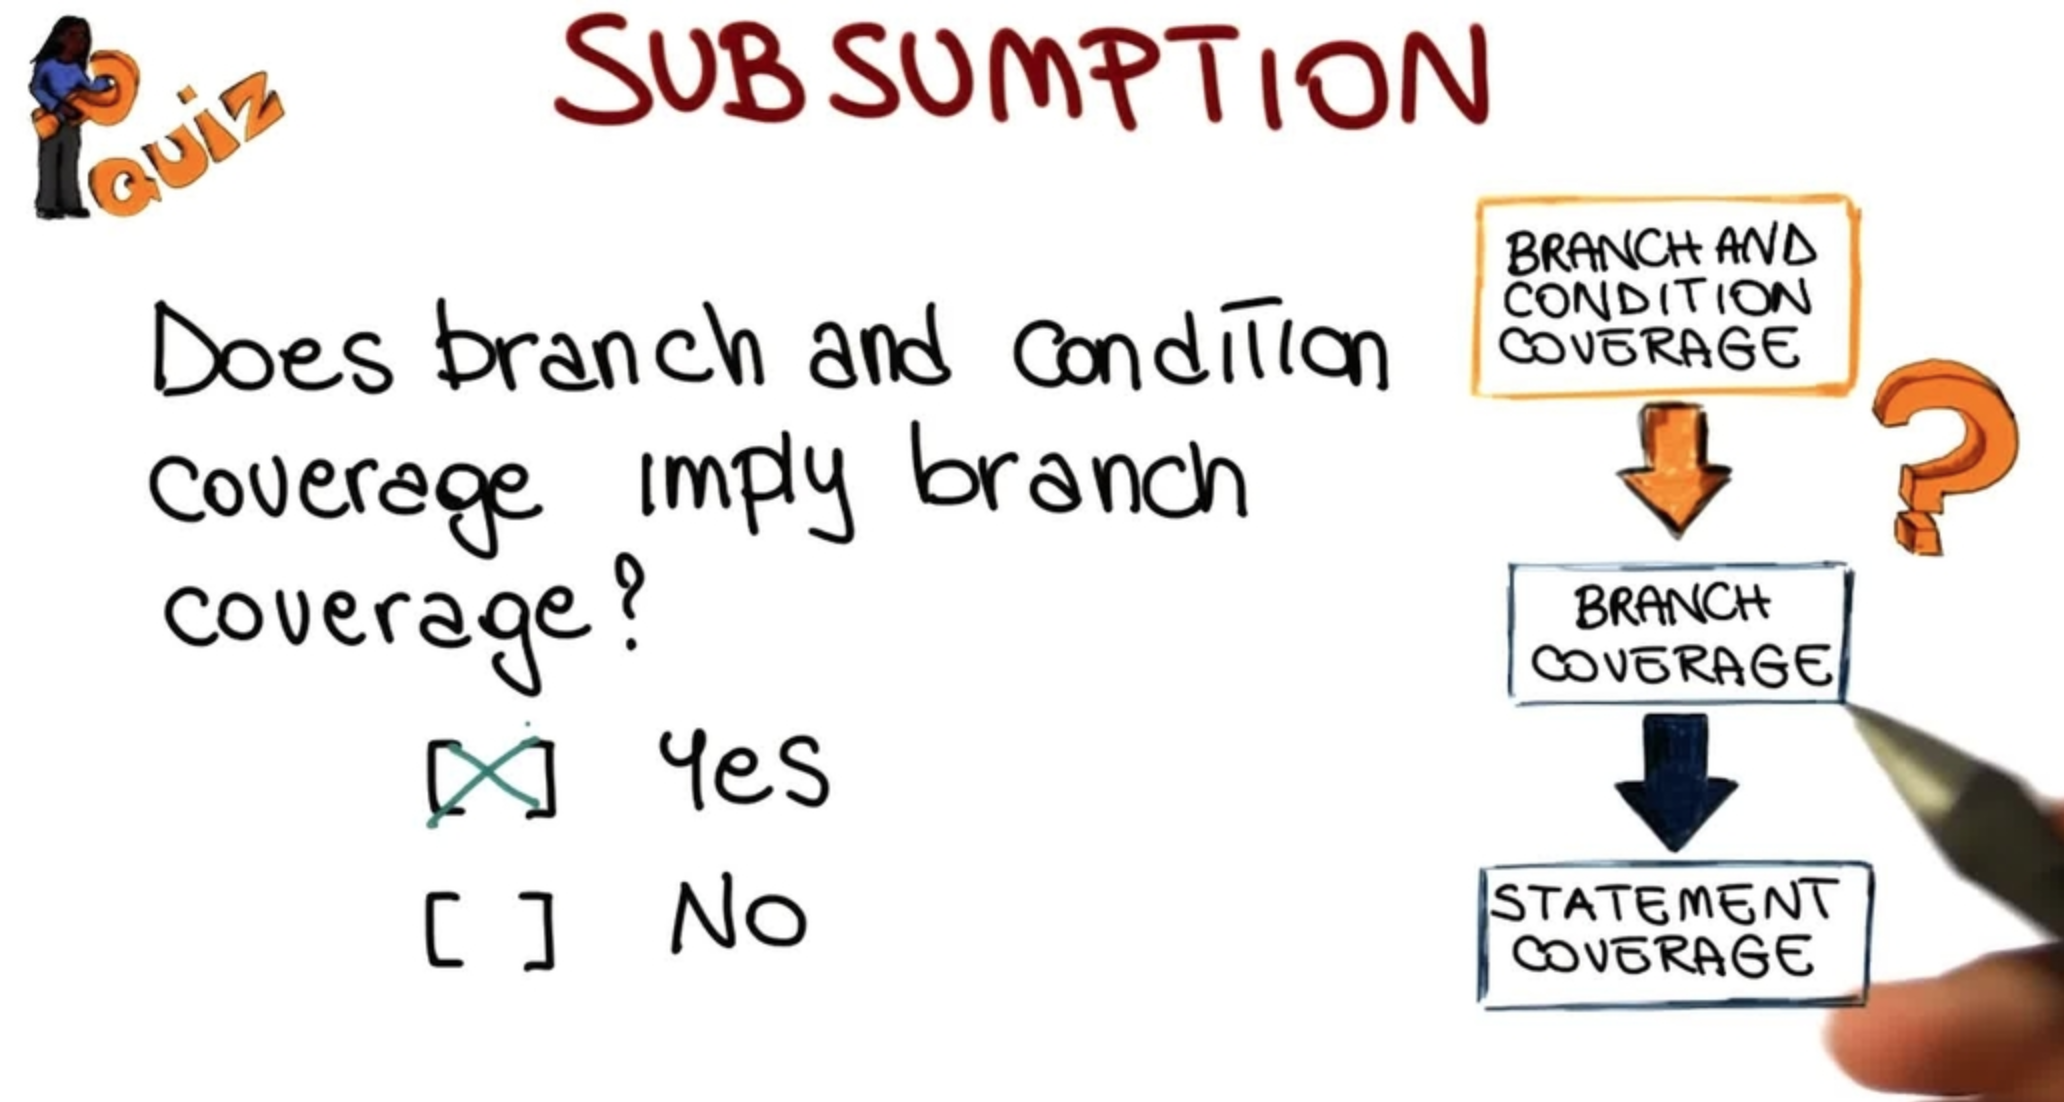 QUIZ
SUBSUMPTION
Does branch and condition
coverage imply branch
coverage?
[X] Yes
[ ] No
BRANCH AND
CONDITION
COVERAGE
?
BRANCH
COVERAGE
STATEMENT
COVERAGE